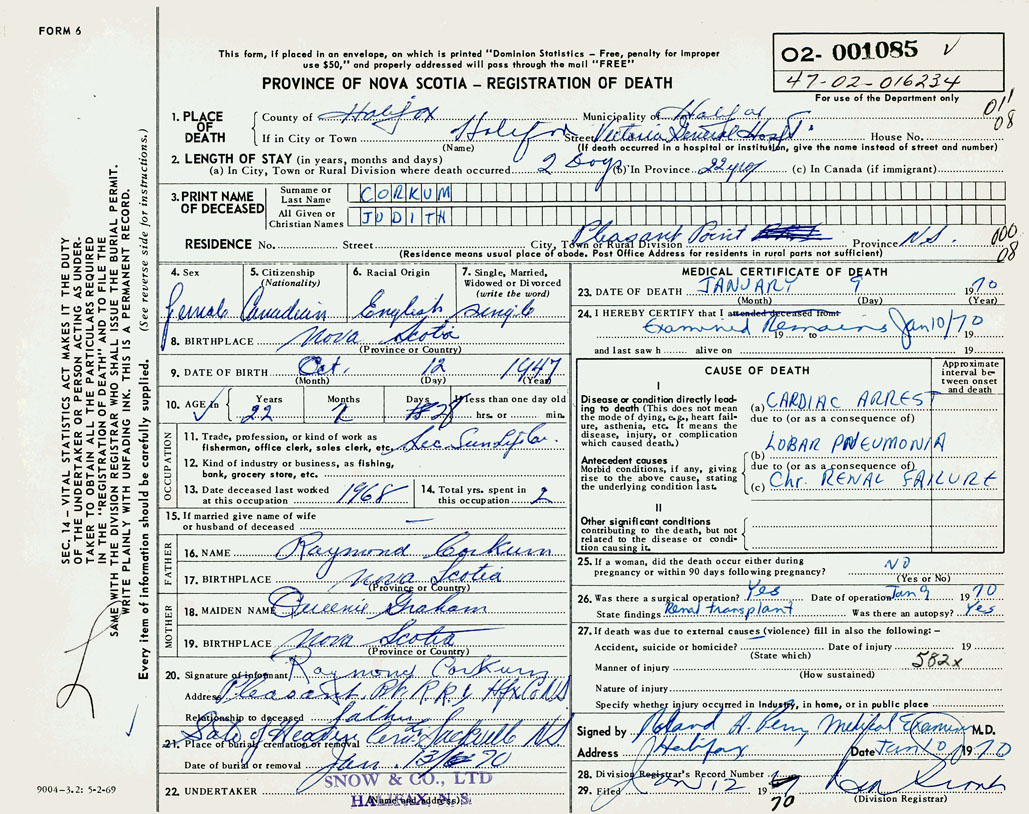 FORM 6
This form, if placed in an envelope, on which is printed "Dominion Statistics – Free, penalty for improper
use $50," and properly addressed will pass through the mail "FREE"
O2- 001085 √
47-02-016234
For use of the Department only
PROVINCE OF NOVA SCOTIA – REGISTRATION OF DEATH
011
08
1. PLACE OF DEATH
County of Halifax Municipality of Halifax
If in City or Town Halifax Street Victoria General Hospt. House No.
(Name) (If death occurred in a hospital or institution, give the name instead of street and number)
2. LENGTH OF STAY (in years, months and days)
(a) In City, Town or Rural Division where death occurred 2 Days (b) In Province 22 yrs (c) In Canada (if immigrant)
3. PRINT NAME OF DECEASED
Surname or Last Name CORKUM
All Given or Christian Names JUDITH
RESIDENCE No. Street City, Town or Rural Division Pleasant Point Province N.S.
(Residence means usual place of abode. Post Office Address for residents in rural parts not sufficient)
000
08
4. Sex 5. Citizenship (Nationality) 6. Racial Origin 7. Single, Married, Widowed or Divorced (write the word)
Female Canadian English single
8. BIRTHPLACE Nova Scotia
(Province or Country)
9. DATE OF BIRTH Oct. 12 1947
(Month) (Day) (Year)
10. AGE in Years Months Days If less than one day old
√ 22 2 28 hrs. or min.
OCCUPATION
11. Trade, profession, or kind of work as
fisherman, office clerk, sales clerk, etc. Sec.
12. Kind of industry or business, as fishing,
bank, grocery store, etc.
13. Date deceased last worked at this occupation 1968
14. Total yrs. spent in this occupation 2
15. If married give name of wife
or husband of deceased —
FATHER
16. NAME Raymond Corkum
17. BIRTHPLACE Nova Scotia
(Province or Country)
MOTHER
18. MAIDEN NAME Queenie Graham
19. BIRTHPLACE Nova Scotia
(Province or Country)
20. Signature of informant Raymond Corkum
Address Pleasant Pt. R.R.1 Hfx Co NS
Relationship to deceased father
21. Place of burial, cremation or removal Gate of Heaven Cem. Sackville NS
Date of burial or removal Jan. 70
22. UNDERTAKER SNOW & CO., LTD
HALIFAX, N.S.
(Name and address)
MEDICAL CERTIFICATE OF DEATH
23. DATE OF DEATH JANUARY 9 1970
(Month) (Day) (Year)
24. I HEREBY CERTIFY that I attended deceased from
Examined Remains 19 to Jan 10/70 19
and last saw h alive on 19
CAUSE OF DEATH
Approximate interval between onset and death
I
Disease or condition directly leading to death (This does not
mean the mode of dying, e.g., heart failure, asthenia, etc. It means the
disease, injury, or complication which caused death.)
(a) CARDIAC ARREST
due to (or as a consequence of)
Antecedent causes
Morbid conditions, if any, giving
rise to the above cause, stating
the underlying condition last.
(b) LOBAR PNEUMONIA
due to (or as a consequence of)
(c) Chr. RENAL FAILURE
II
Other significant conditions
contributing to the death, but not
related to the disease or condition causing it.
25. If a woman, did the death occur either during
pregnancy or within 90 days following pregnancy? NO
(Yes or No)
26. Was there a surgical operation? Yes Date of operation Jan 9 1970
State findings Renal transplant Was there an autopsy? Yes
27. If death was due to external causes (violence) fill in also the following: –
Accident, suicide or homicide? Date of injury 19
(State which)
582x
Manner of injury
(How sustained)
Nature of injury
Specify whether injury occurred in Industry, in home, or in public place
Signed by Roland A. Perry Medical Examiner M.D.
Address Halifax Date Jan 10 1970
28. Division Registrar's Record Number
29. Filed Jan 12 19 70
(Division Registrar)
SEC. 14 – VITAL STATISTICS ACT MAKES IT THE DUTY
OF THE UNDERTAKER OR PERSON ACTING AS UNDER-
TAKER TO OBTAIN ALL THE PARTICULARS REQUIRED
IN THE "REGISTRATION OF DEATH" AND TO FILE THE
SAME WITH THE DIVISION REGISTRAR WHO SHALL ISSUE THE BURIAL PERMIT.
WRITE PLAINLY WITH UNFADING INK. THIS IS A PERMANENT RECORD.
Every item of information should be carefully supplied. (See reverse side for instructions.)
9004–3.2: 5-2-69